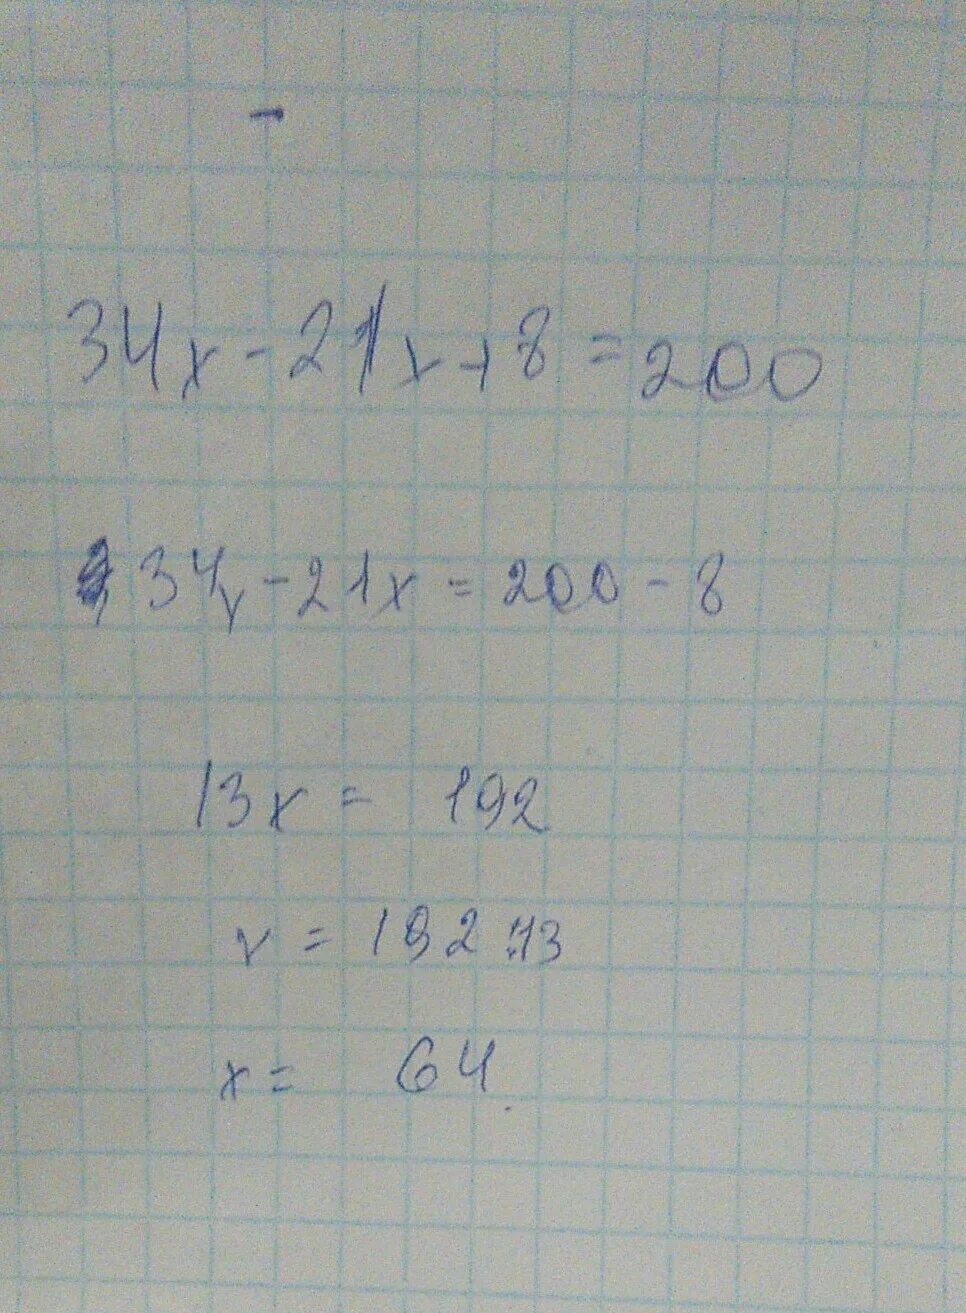 34x - 21x + 8 = 200
34x - 21x = 200 - 8
13x = 192
x = 192 : 13
x = 64